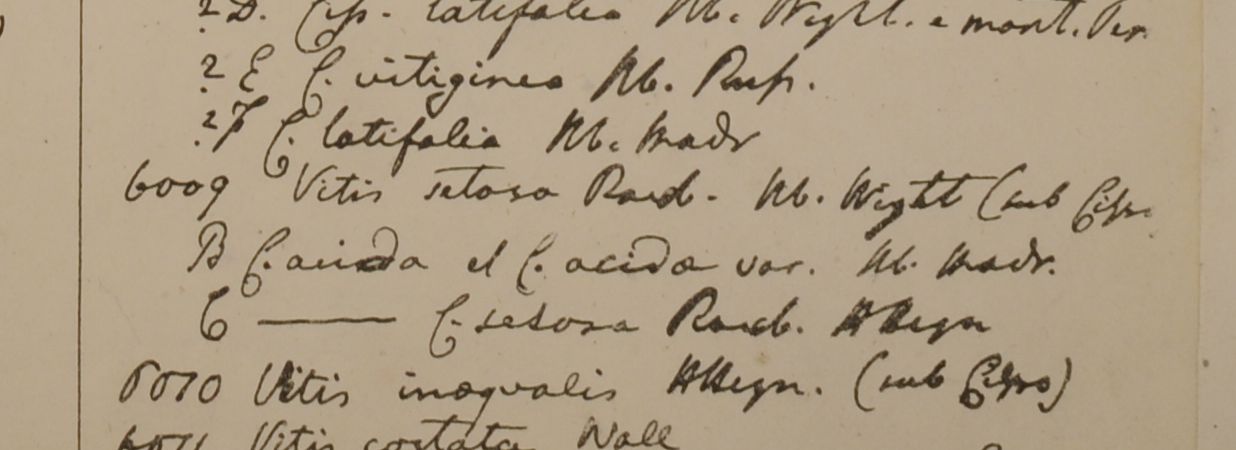 ? D. Ciss. latifolia Hb. Wight. e mont. Per.
? E C. vitiginea Hb. Russ.
? F C. latifolia Hb. Madr
6009 Vitis setosa Roxb. Hb. Wight (sub Cisso
B C. acida et C. acida var. Hb. Madr.
C —— C. setosa Roxb. HHeyn
6010 Vitis inæqualis HHeyn. (sub Cisso)
6011 Vitis costata Wall